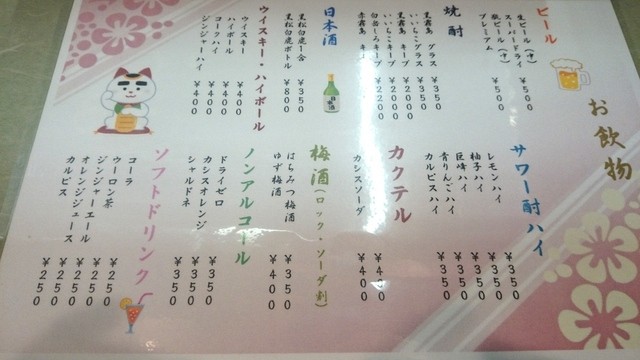 お飲物
ビール
生ビール（中） ¥500
スーパードライ
瓶ビール（中） ¥500
プレミアム
焼酎
黒霧島 グラス ¥350
いいちこグラス ¥350
黒霧島 キープ ¥2000
いいちこキープ ¥2000
白岳しろキープ ¥2200
赤霧島 キープ
日本酒
黒松白鹿1合 ¥350
黒松白鹿ボトル ¥800
日本酒
ウイスキー・ハイボール
ウイスキー ¥400
ハイボール ¥400
コークハイ ¥400
ジンジャーハイ ¥400
サワー酎ハイ
レモンハイ ¥350
柚子ハイ ¥350
巨峰ハイ ¥350
青りんごハイ ¥350
カルピスハイ ¥350
カクテル
¥400
カシスソーダ ¥400
梅酒（ロック・ソーダ割）
はちみつ梅酒 ¥350
ゆず梅酒 ¥400
ノンアルコール
ドライゼロ ¥350
カシスオレンジ ¥350
シャルドネ ¥350
ソフトドリンク
コーラ ¥250
ウーロン茶 ¥250
ジンジャーエール ¥250
オレンジジュース ¥250
カルピス ¥250